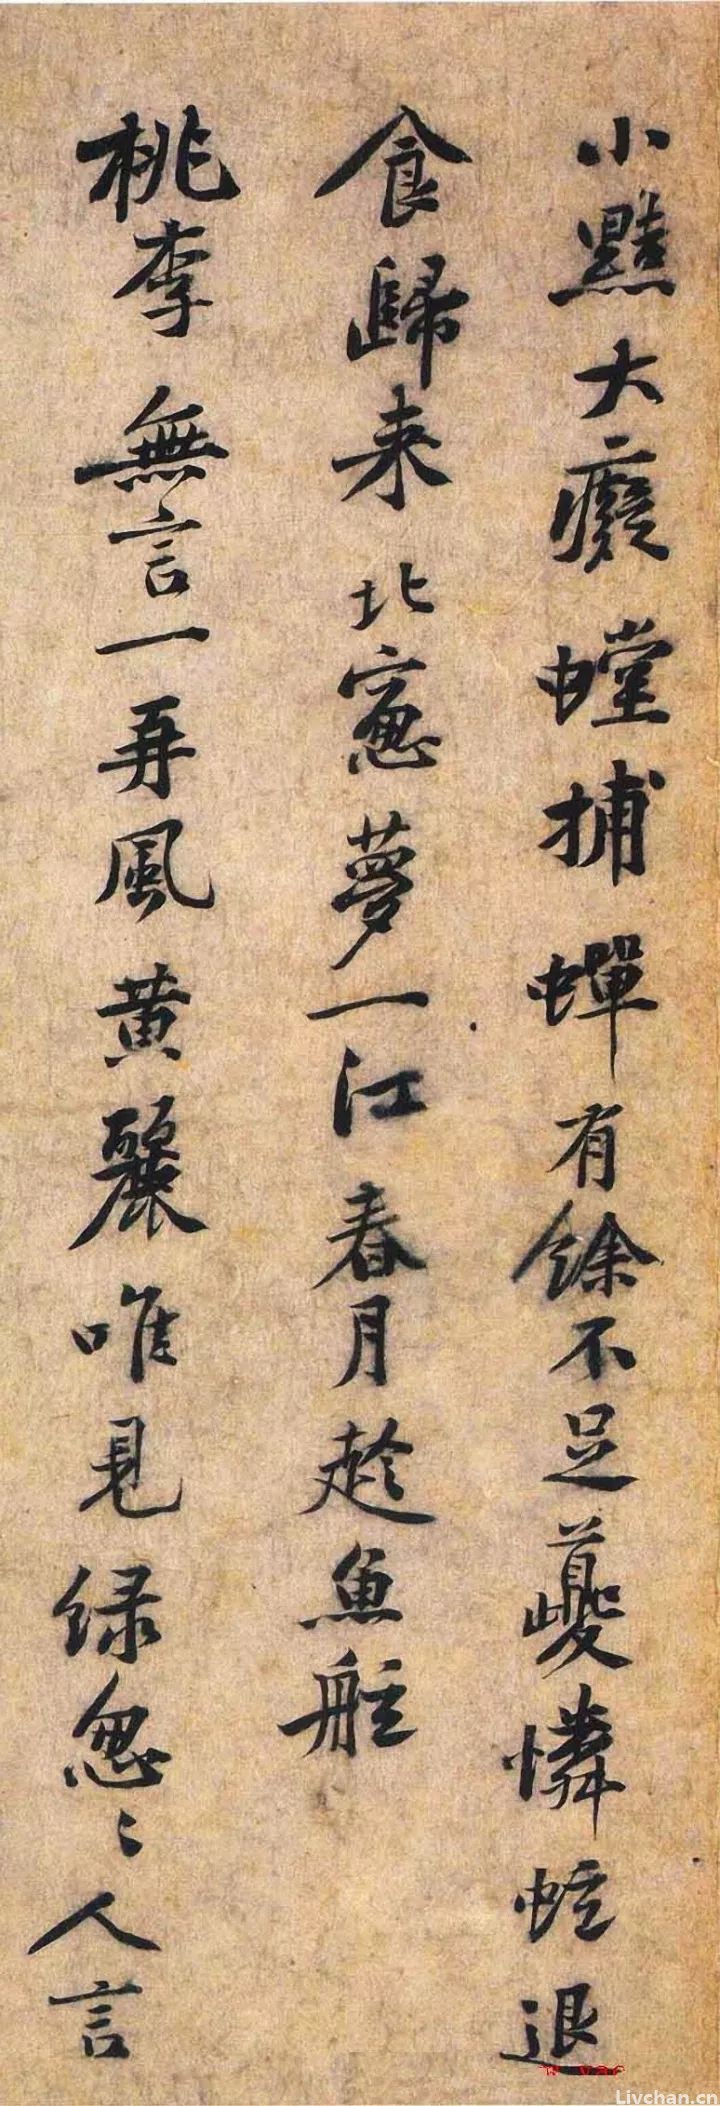 小黠大癡螳捕蟬有餘不足夔憐蚿退
食歸来北窻夢一江春月趂魚舡
桃李無言一再風黄麗唯見绿怱〻人言
Livchan.cn